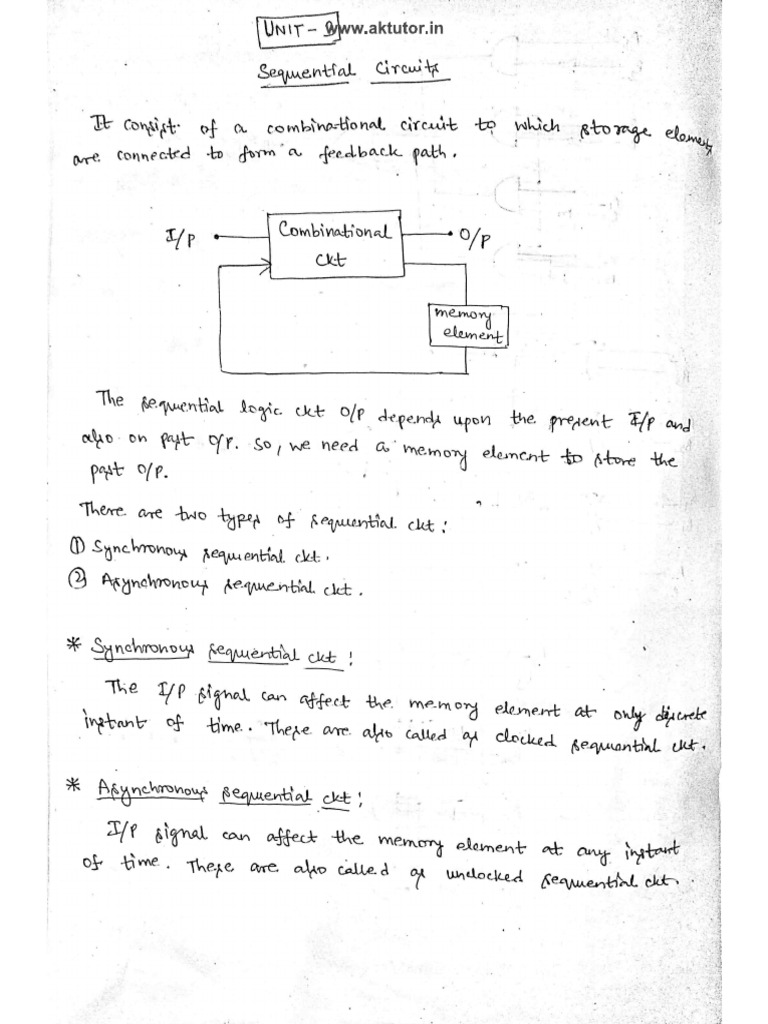 UNIT - www.aktutor.in
Sequential Circuits
It consist of a combinational circuit to which storage elements
are connected to form a feedback path.
I/P
Combinational
ckt
O/P
memory
element
The sequential logic ckt O/P depends upon the present I/P and
also on past O/P. So, we need a memory element to store the
past O/P.
There are two types of sequential ckt :
① Synchronous sequential ckt.
② Asynchronous sequential ckt.
* Synchronous sequential ckt :
The I/P signal can affect the memory element at only discrete
instant of time. These are also called as clocked sequential ckt.
* Asynchronous sequential ckt :
I/P signal can affect the memory element at any instant
of time. These are also called as unclocked sequential ckt.